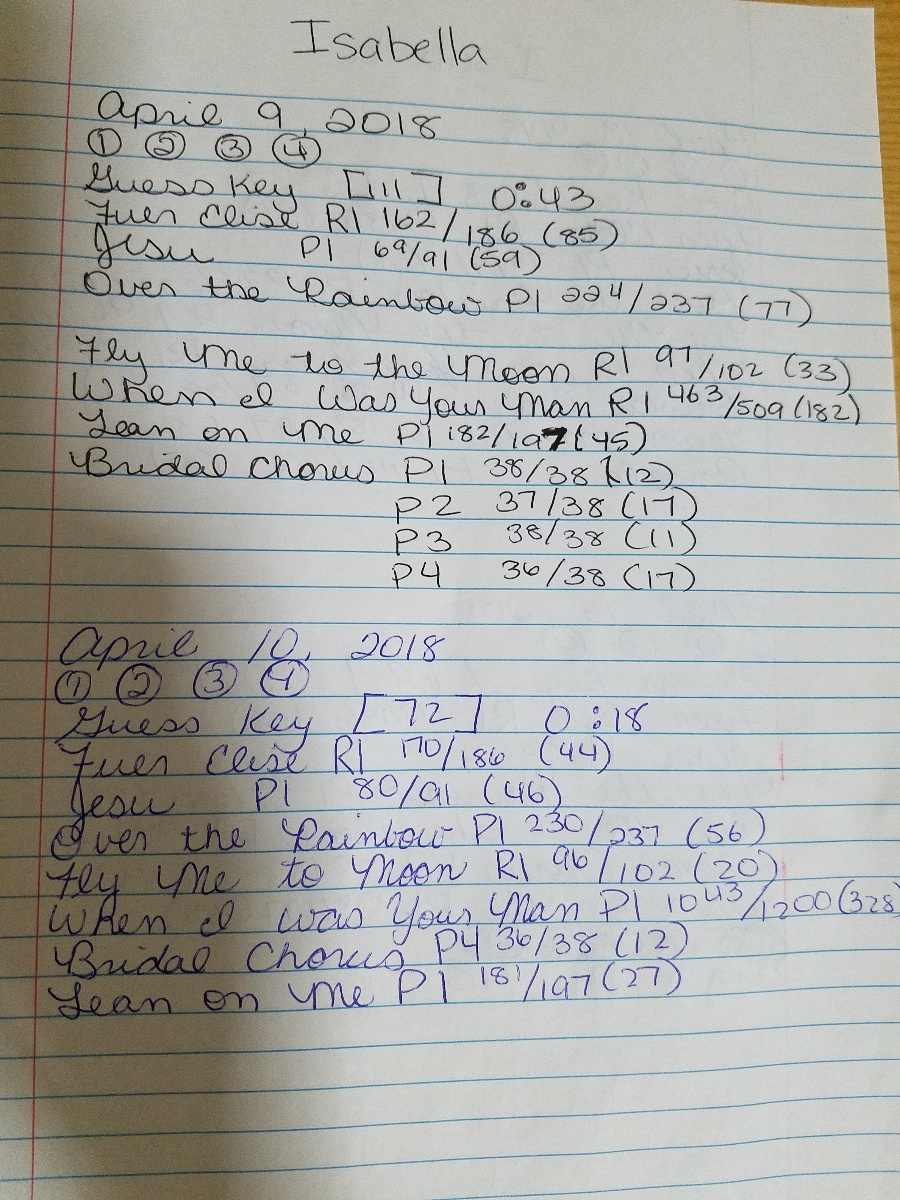 Isabella
April 9, 2018
① ② ③ ④
Guess Key [111] 0:43
Fuer Elise R1 162/186 (85)
Jesu P1 69/91 (59)
Over the Rainbow P1 224/237 (77)
Fly Me to the Moon R1 97/102 (33)
When I Was Your Man R1 463/509 (182)
Lean on Me P1 182/197 (45)
Bridal Chorus P1 38/38 (12)
P2 37/38 (17)
P3 38/38 (11)
P4 36/38 (17)
April 10, 2018
① ② ③ ④
Guess Key [72] 0:18
Fuer Elise R1 170/186 (44)
Jesu P1 80/91 (46)
Over the Rainbow P1 230/237 (56)
Fly Me to Moon R1 96/102 (20)
When I Was Your Man P1 1043/1200 (328)
Bridal Chorus P4 36/38 (12)
Lean on Me P1 181/197 (27)